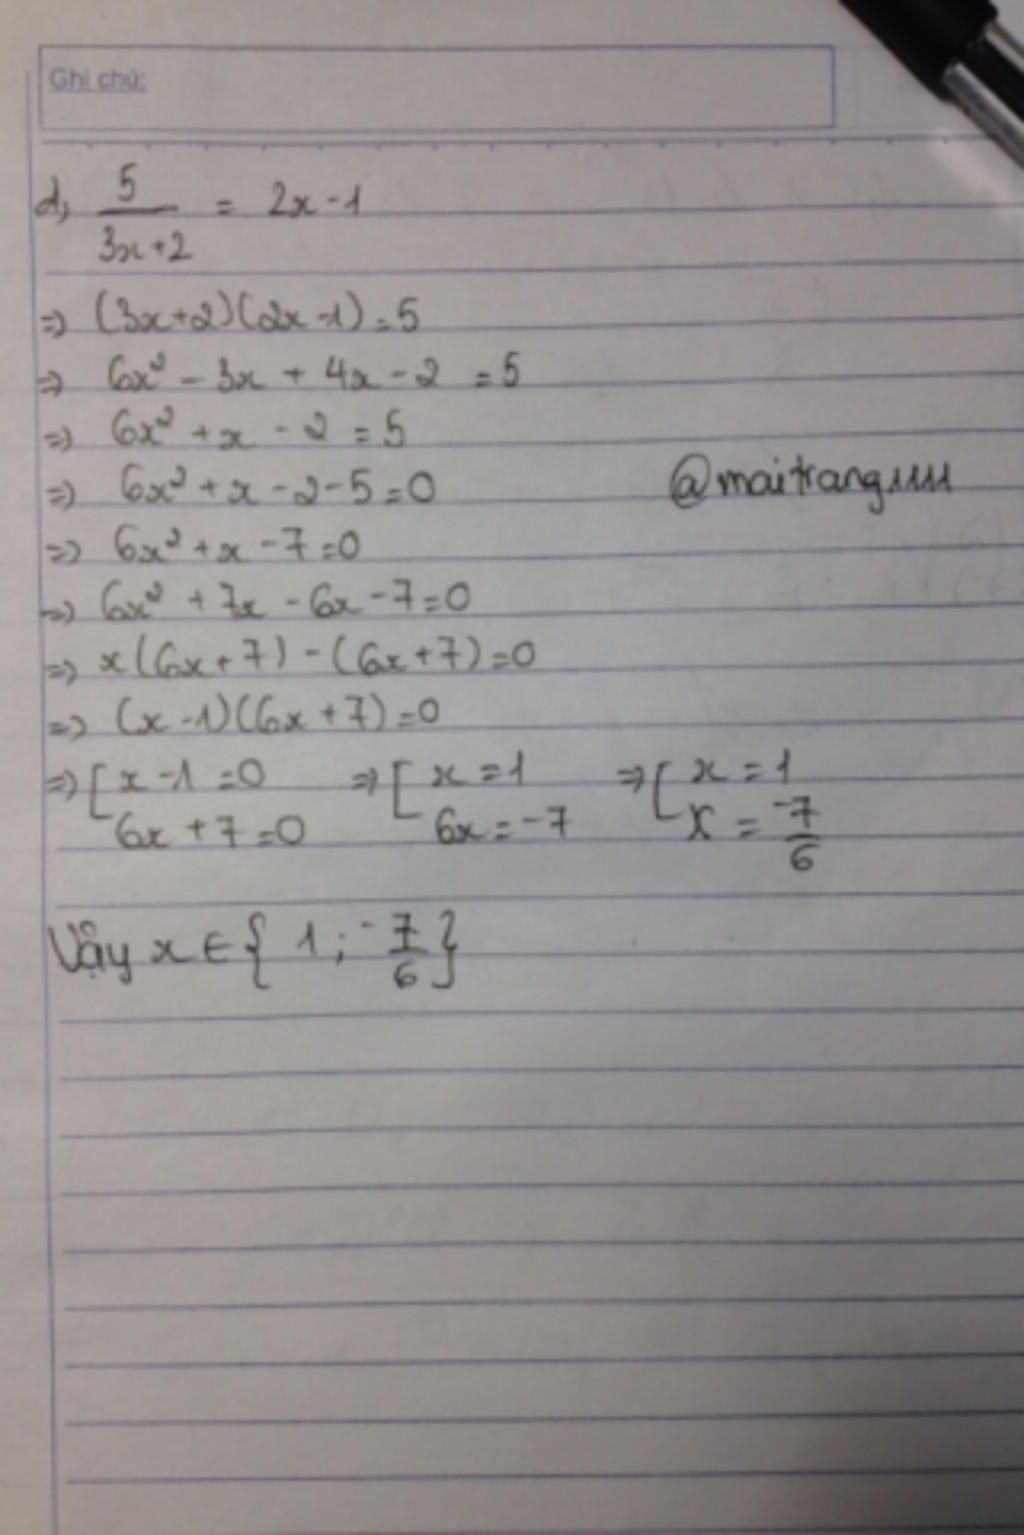 Ghi chú:
d, 5/(3x+2) = 2x-1
=> (3x+2)(2x-1)=5
=> 6x² - 3x + 4x - 2 = 5
=> 6x² + x - 2 = 5
=> 6x² + x - 2 - 5 = 0
@maitrang11111
=> 6x² + x - 7 = 0
=> 6x² + 7x - 6x - 7 = 0
=> x(6x+7) - (6x+7) = 0
=> (x-1)(6x+7) = 0
=> [ x-1=0 => [ x=1 => [ x=1
6x+7=0 6x=-7 x = -7/6
Vậy x ∈ { 1 ; -7/6 }